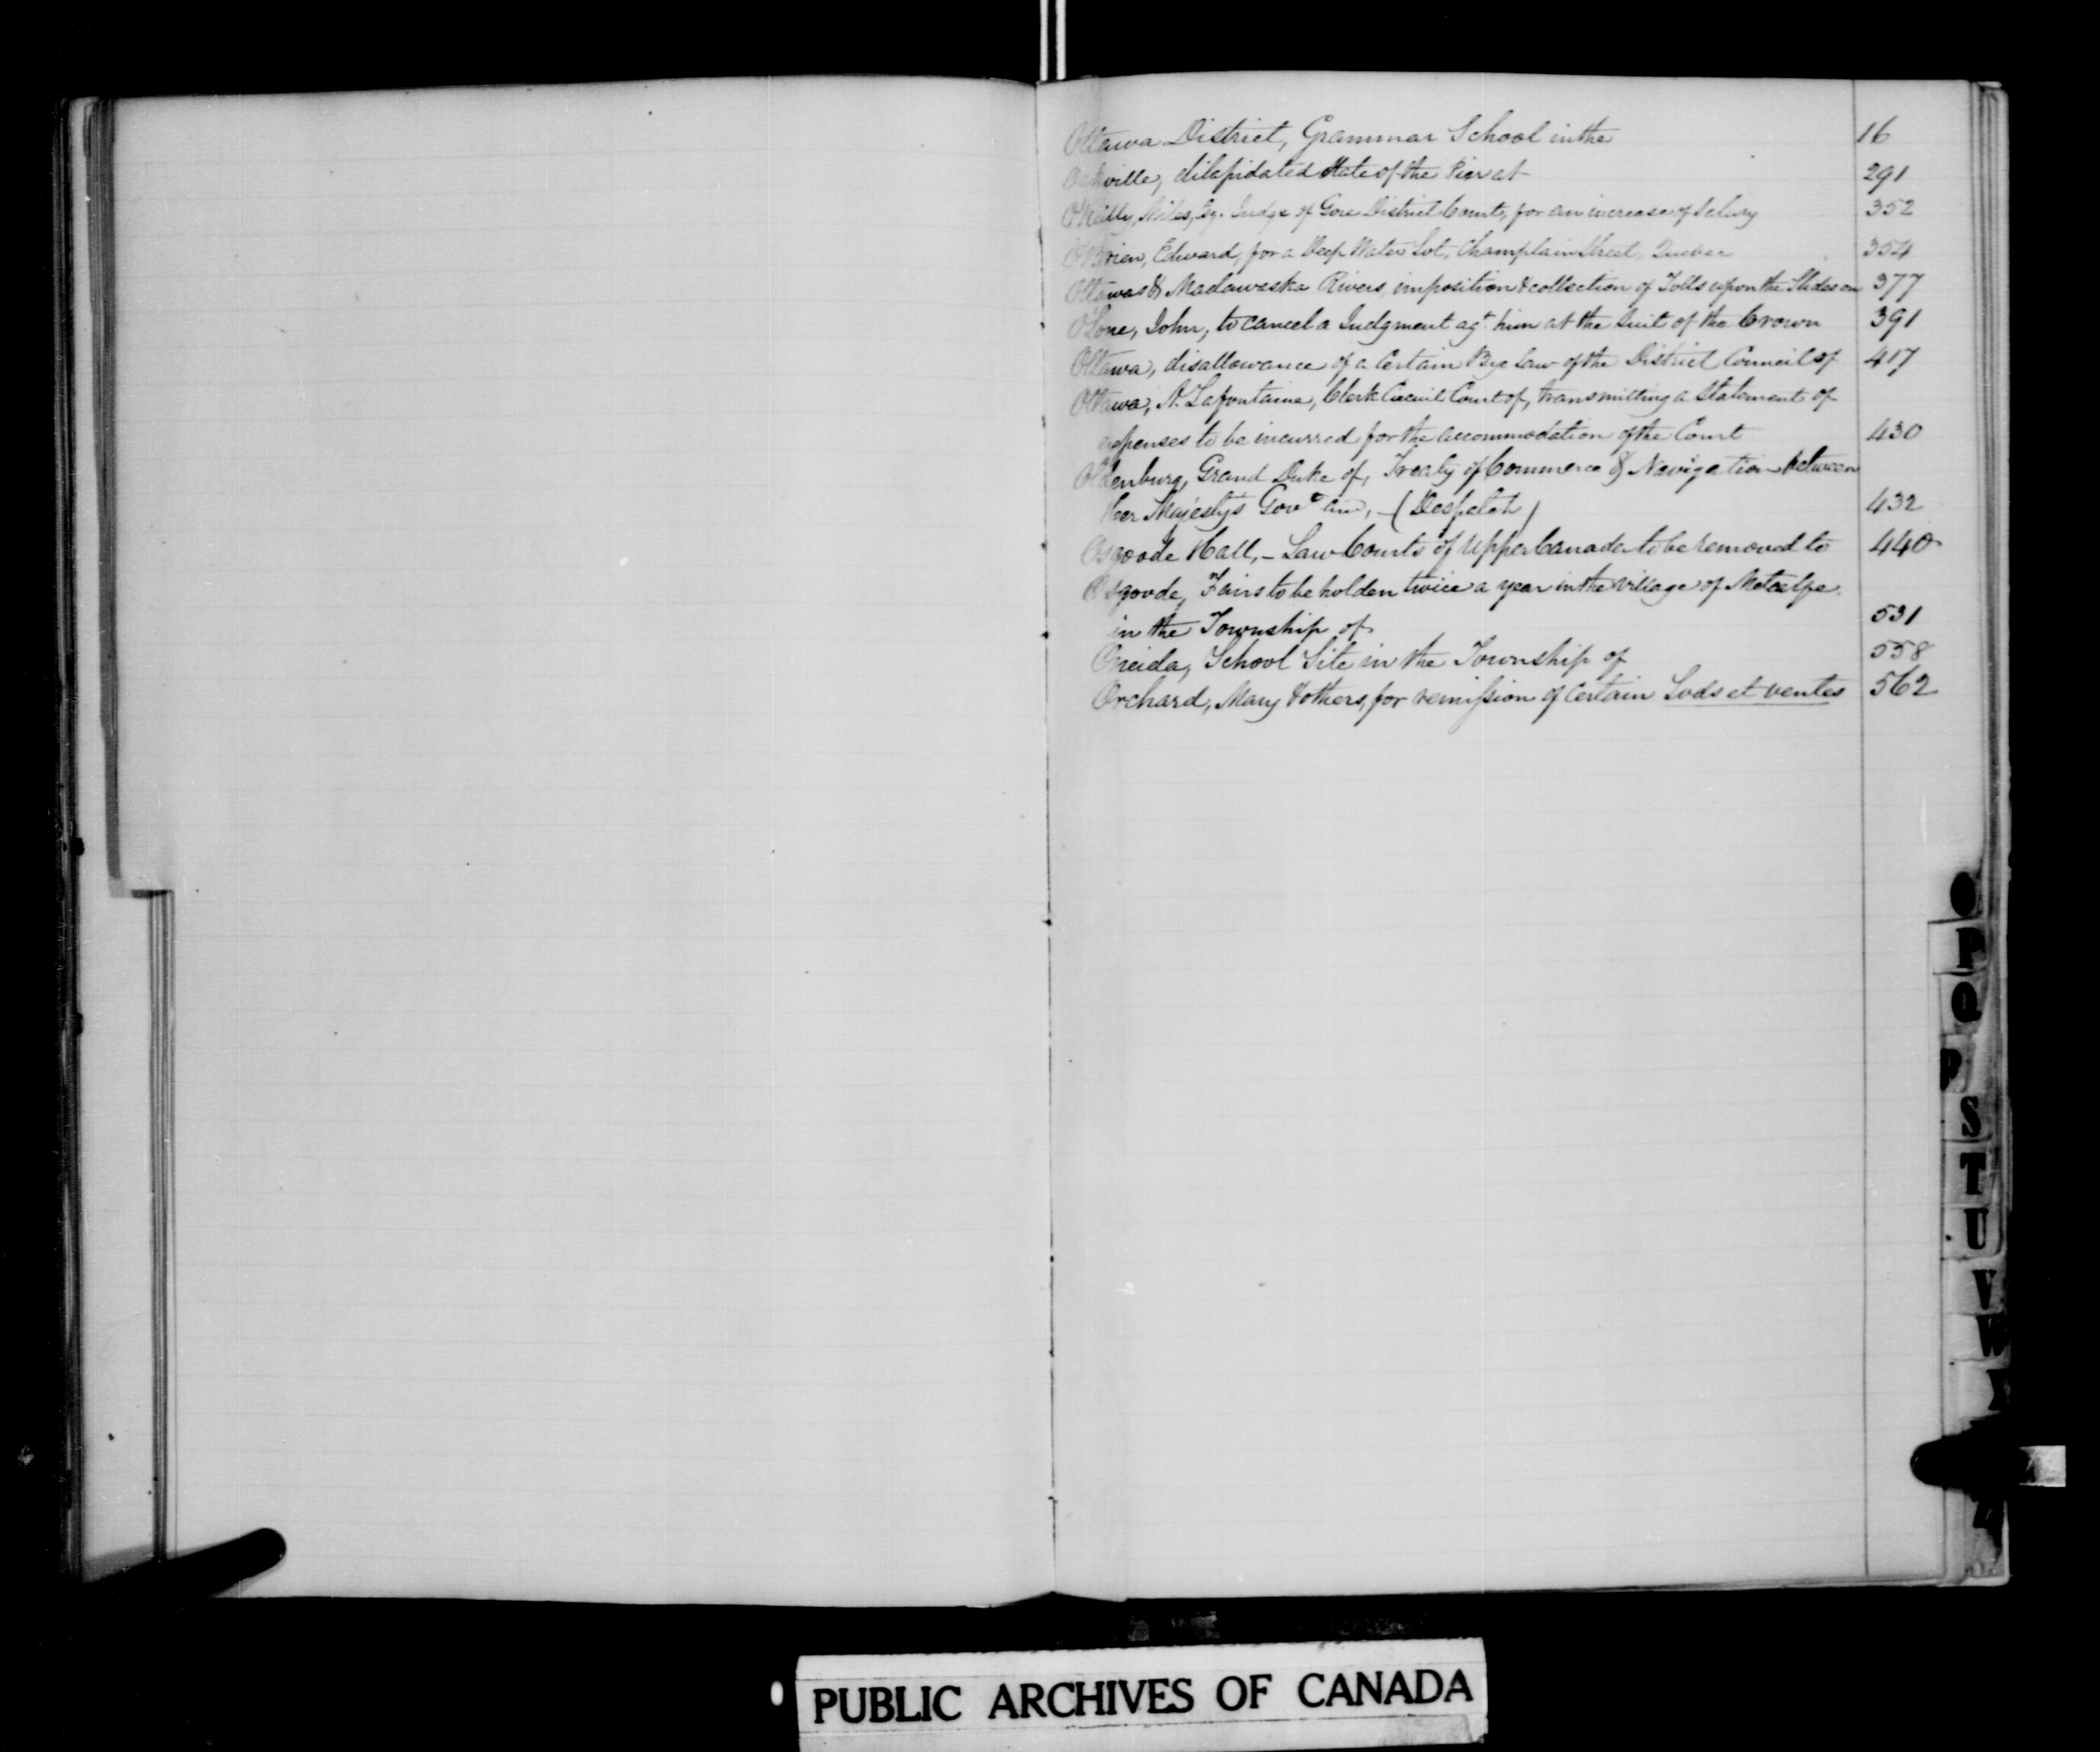 Ottawa District, Grammar School in the 16
Oakville, dilapidated State of the Pier at 291
O'Reilly, Miles, Esq. Judge of Gore District Court, for an increase of Salary 352
O'Brien, Edward, for a Deep Water Lot, Champlain Street, Quebec 354
Ottawa & Madawaska Rivers, imposition & collection of Tolls upon the Slides on 377
O'Lone, John, to cancel a Judgment agt. him at the Suit of the Crown 391
Ottawa, disallowance of a Certain Bye Law of the District Council of 417
Ottawa, A. Lafontaine, Clerk Circuit Court of, transmitting a Statement of
expenses to be incurred for the accommodation of the Court 430
Oldenburg, Grand Duke of, Treaty of Commerce & Navigation between
Her Majesty's Govt. and, - (Despatch) 432
Osgoode Hall, - Law Courts of Upper Canada to be removed to 440
Osgoode, Fairs to be holden twice a year in the Village of Metcalfe
in the Township of 531
Oneida, School Site in the Township of 558
Orchard, Mary & others, for remission of Certain Lods et ventes 562
O
P
Q
S
T
U
V
W
PUBLIC ARCHIVES OF CANADA